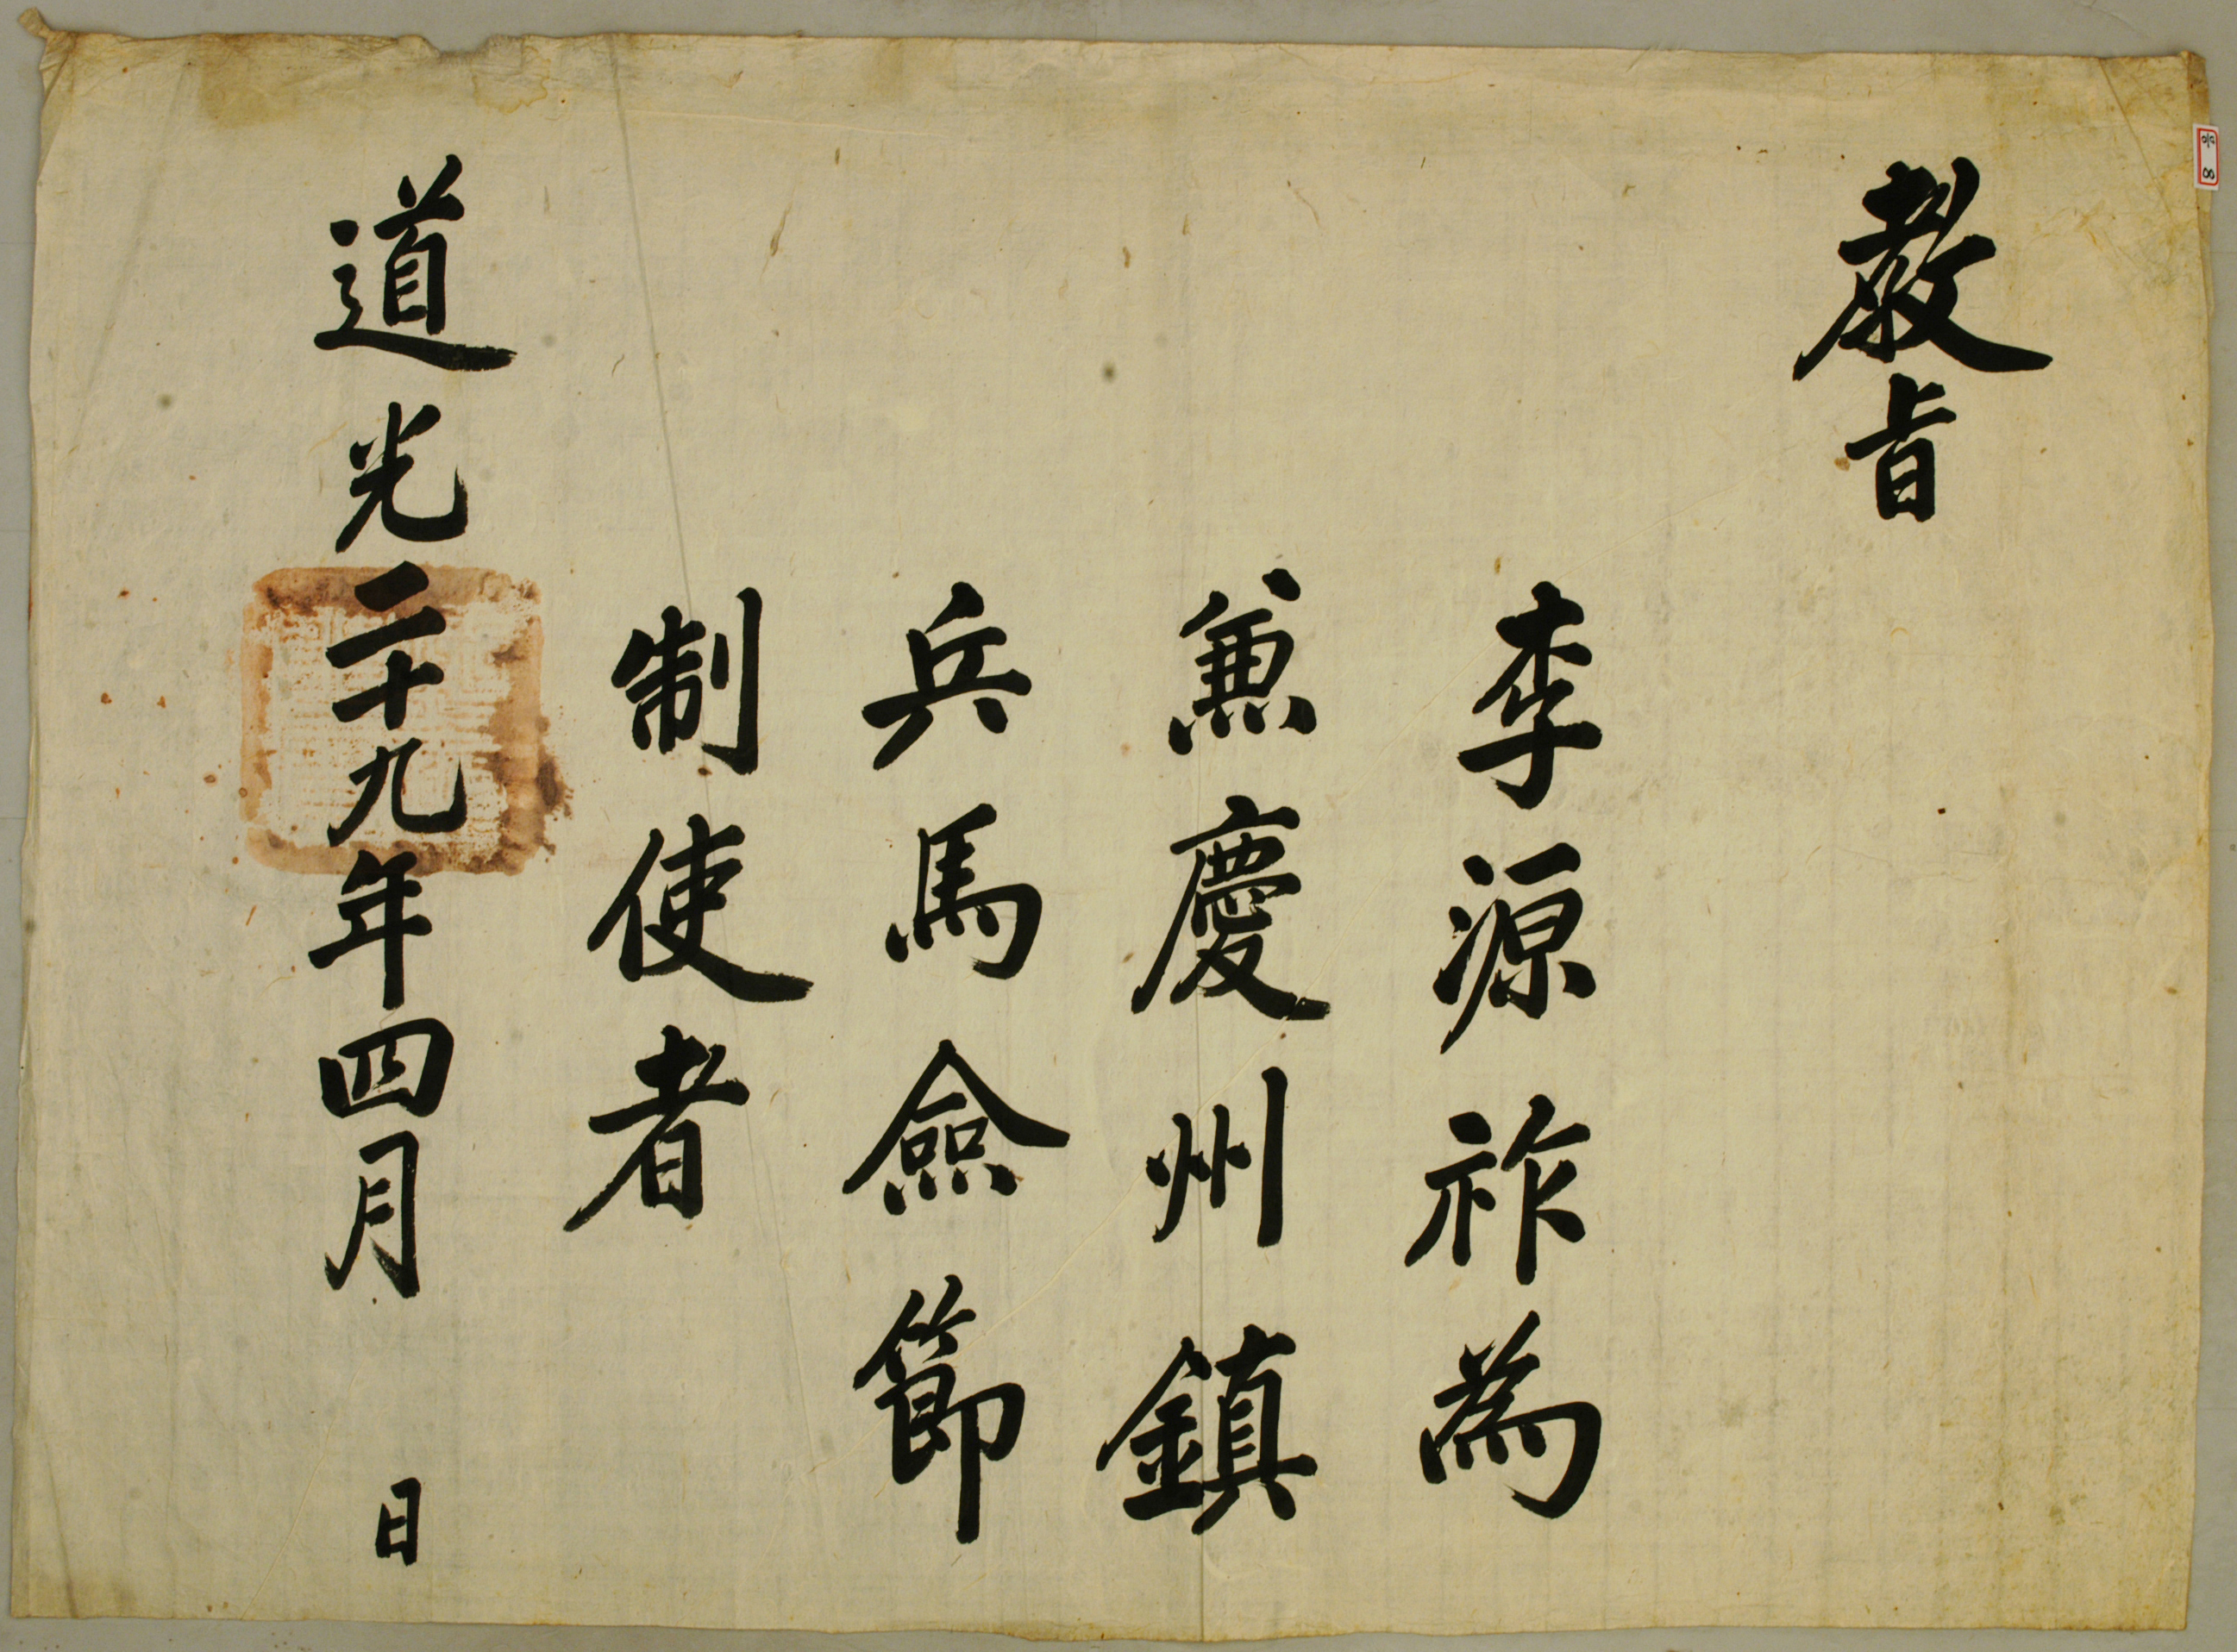 敎旨
李源祚為
兼慶州鎮
兵馬僉節
制使者
道光二十九年四月 日
8